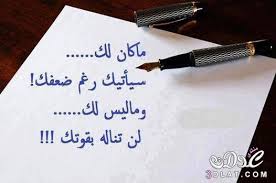 ماكان لك......
سيأتيك رغم ضعفك!
وماليس لك......
لن تناله بقوتك !!!
3DLAT.COM